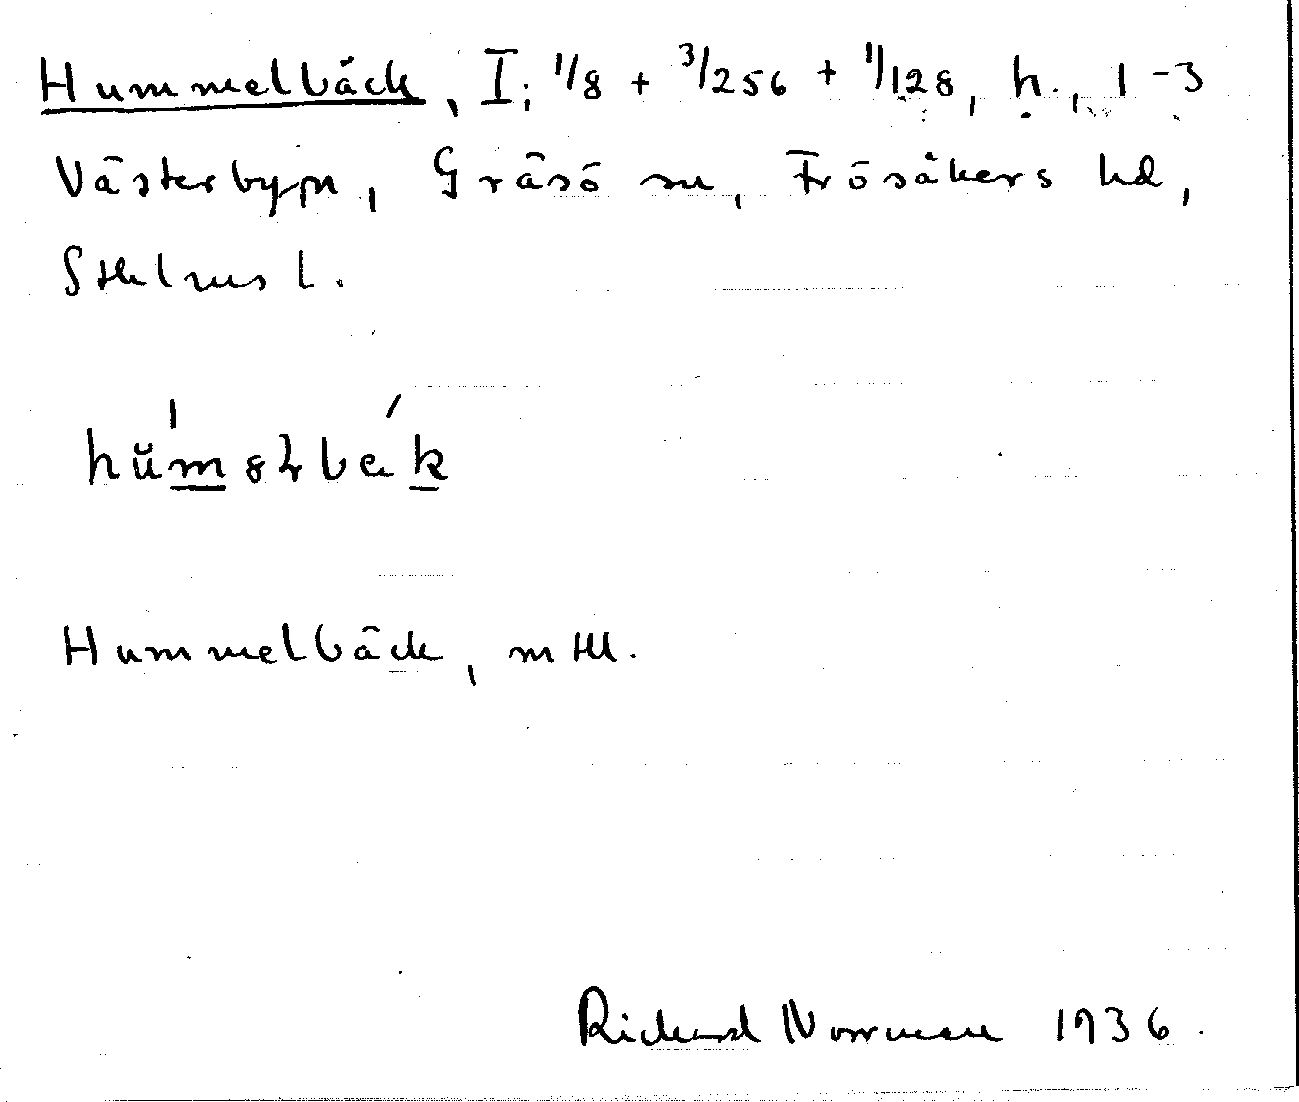 Hummelbäck, I; 1/8 + 3/256 + 1/128, h., 1-3
Västerbyn, Gräsö sn, Frösåkers hd,
Sthlms l.
Hummelbäck, mtl.
Richard Norrman 1936.